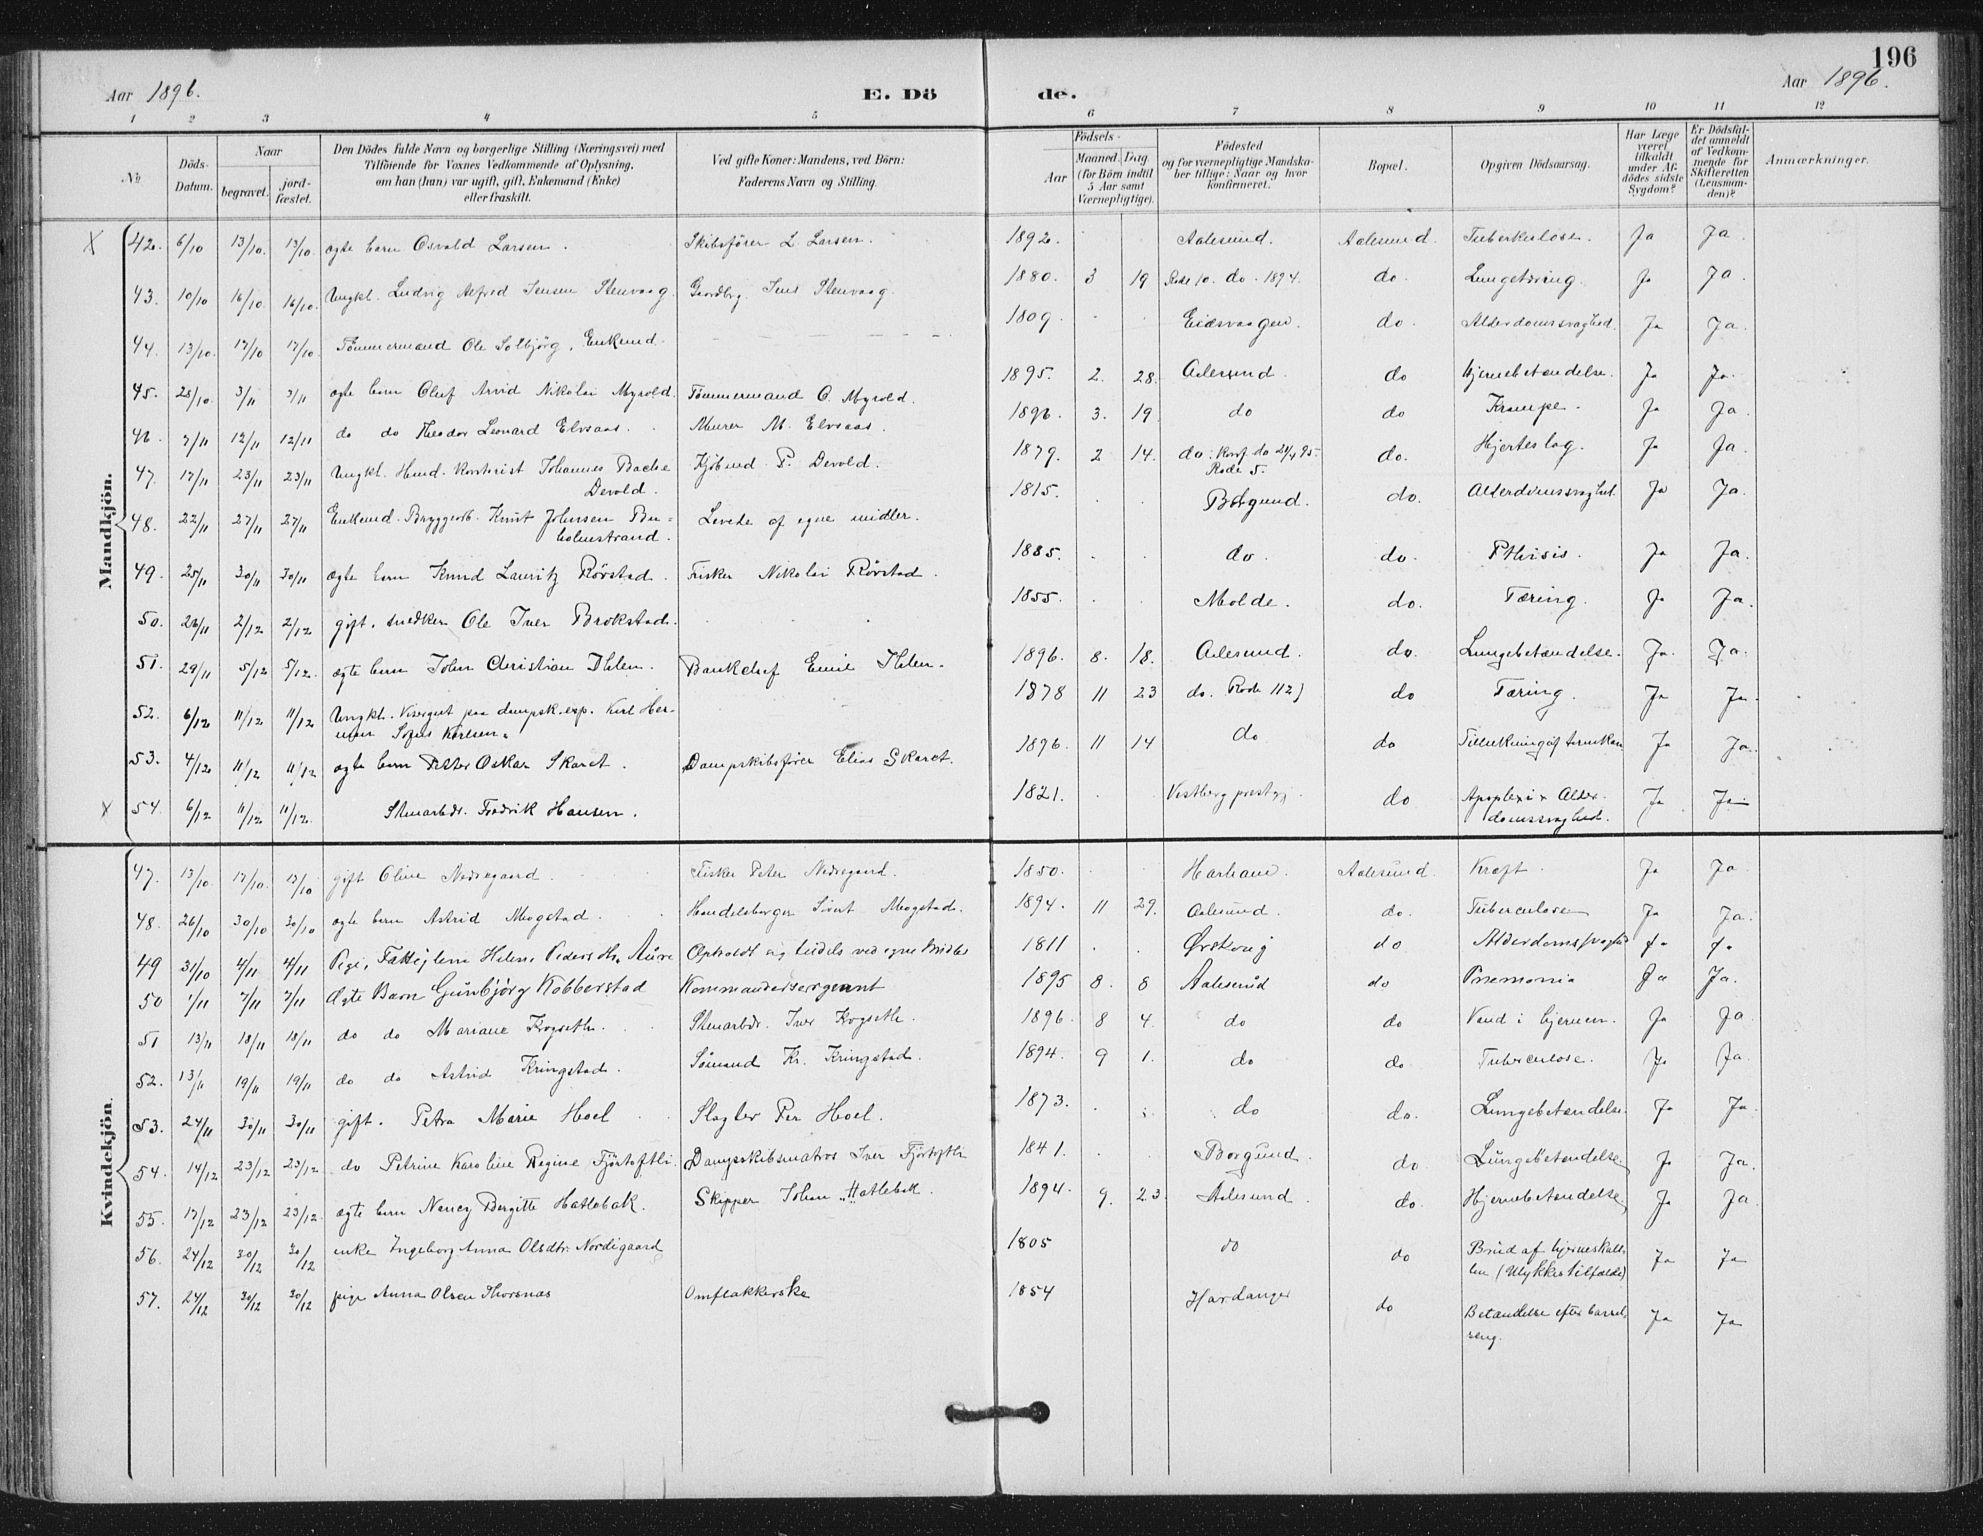 196
Aar 1896. E. Dö de. Aar 1896.
1 2 3 4 5 6 7 8 9 10 11 12
№ Döds-Datum. Naar begravet. jord-fæstet. Den Dödes fulde Navn og borgerlige Stilling (Næringsvei) med Tilföiende for Voxnes Vedkommende af Oplysning, om han (hun) var ugift, gift, Enkemand (Enke) eller fraskilt. Ved gifte Koner: Mandens, ved Börn: Faderens Navn og Stilling. Födsels- Aar Maaned. Dag (for Börn indtil 5 Aar samt Værnepligtige). Födested og for værnepligtige Mandskaber tillige: Naar og hvor konfirmeret. Bopæl. Opgiven Dödsaarsag. Har Læge været tilkaldt under Afdödes sidste Sygdom? Er Dödsfaldet anmeldt af Vedkommende for Skifteretten (Lensmanden)? Anmærkninger.
Mandkjön.
X 42. 6/10 13/10. 13/10. ægte barn Osvald Larsen. Skibsfører L. Larsen. 1892. Aalesund. Aalesund. Tuberkulose. Ja Ja.
43. 10/10 16/10. 16/10. Ungkl. Ludvig Alfred Jensen Stenvaag. Jens Stenvaag. 1880. 3 19 Rode 10. do. 1894. do. Lungetæring. Ja Ja.
44. 13/10. 17/10 17/10. Tömmermand Ole Solbjörg, Enkemd. 1809. Eidsvaagen. do. Alderdomssvaghed. Ja Ja.
45. 28/10. 3/11 3/11 ægte barn Oluf Arvid Nikolai Myrold. Tömmermand O. Myrold. 1895. 2. 28. Aalesund. do Hjernebetændelse. Ja Ja.
46. 7/11 12/11 12/11 do do Theodor Leonard Elvsaas. Murer M. Elvsaas. 1896. 3. 19 do do Krampe. Ja Ja.
47. 17/11 23/11 23/11 Ungkl. Hand. Johannes Bache Devold. Kjöbmd P. Devold. 1879. 2 14. do. Konf. do 21/4 95. Rode 5. do. Hjerteslag. Ja Ja.
48. 22/11 27/11 27/11 Enkemd. Bryggearb. Knut Johnsen Buholmstrand. Levede af egne midler. 1815. Borgund. do. Alderdomssvaghed. Ja Ja.
49. 25/11 30/11 30/11 ægte barn Knud Lauritz Rörstad. Fisker Nikolai Rörstad. 1885. do. do. Pthisis. Ja Ja.
50. 26/11 2/12 2/12 gift. snedker Ole Iver Brokstad. 1855. Molde. do. Tæring. Ja Ja.
51. 29/11 5/12 5/12. ægte barn John Christian Ihlen. Bankchef Emil Ihlen. 1896. 8. 18. Aalesund. do. Lungebetændelse. Ja. Ja.
52. 6/12 11/12 11/12 Ungkl. Visergut paa dampsk.exp. Karl Herman Sofus Karlsen. 1878 11 23 do. Rode 112) do Tæring. Ja Ja.
53. 4/12 11/12 11/12 ægte barn Peter Oskar Skaret. Dampskibsfører Elias Skaret. 1896. 11 14 do do Ja Ja.
X 54. 6/12 11/12 11/12. Stuearbdr. Fredrik Hansen. 1821. do Apoplexi & Alderdomssvaghed. Ja Ja.
Kvindekjön.
47. 13/10. 17/10. 17/10 gift Oline Nedregaard. Fisker Peter Nedregaard. 1850. Harham. Aalesund. Kræft. Ja Ja.
48. 26/10 30/10 30/10 ægte barn Astrid Mogstad. Handelsborger Sivert Mogstad. 1894. 11 29. Aalesund. do. Tuberculose Ja Ja.
49 31/10 4/11 4/11 Pige, Fattiglem Helene Pedersdtr. Aure Opholdt sig tildels ved egne Midler 1811 Ørskoug do Alderdomssvaghed Ja Ja.
50 1/11 7/11 7/11 Ægte Barn Gunbjörg Kobberstad Kommandersergeant 1895 8. 8 Aalesund do Pnemonia Ja Ja.
51 13/11 18/11 18/11 do do Mariane Kogseth. Stuearbdr. Iver Kogseth. 1896. 8 4. do do Vand i hjernen. Ja Ja
52. 13/11 19/11 19/11 do do Astrid Kringstad. Sömand Kr. Kringstad. 1894. 9 1. do do. Tuberculose. Ja Ja.
53. 24/11 30/11 30/11 gift. Petra Marie Hoel Slagter Per Hoel. 1873. do do. Lungebetændelse. Ja Ja.
54. 14/12 23/12 23/12 do Petrine Karoline Regine Fjörtoftli. Dampskibsmatros Iver Fjörtoftli 1841. Borgund do. Lungebetændelse. Ja Ja.
55. 17/12 23/12 23/12. ægte barn Nancy Bergitte Hatlebak. Skipper Johan Hatlebak. 1894. 9. 23. Aalesund. do. Hjernebetændelse. Ja Ja
56. 24/12 30/12 30/12 enke Ingeborg Anna Olsdtr. Nordigaard 1805 do do Brud af hjerneskallen (Ulykkestilfælde) Ja Ja
57. 24/12 30/12 30/12 pige Anna Olsen Thorsnæs Omflakkerske 1854 Hardanger do Betændelse efter barselseng. Ja Ja